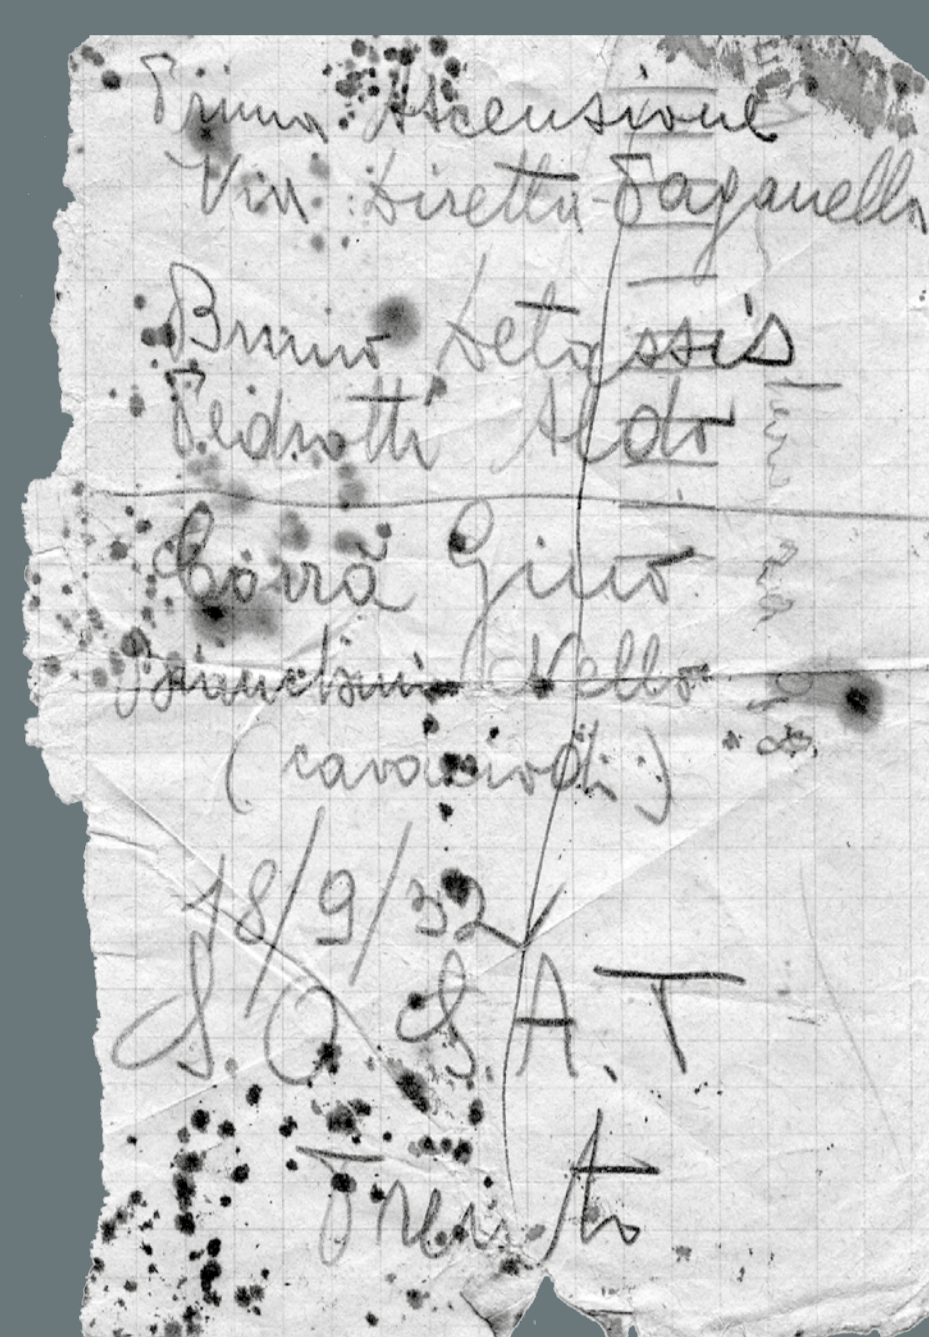 Prima Ascensione
Via Diretta Paganella
Bruno Detassis
Pedrotti Aldo
Corrà Gino
Bianchini Nello
(cavaciodi)
18/9/32
S.O.S.A.T
Trento